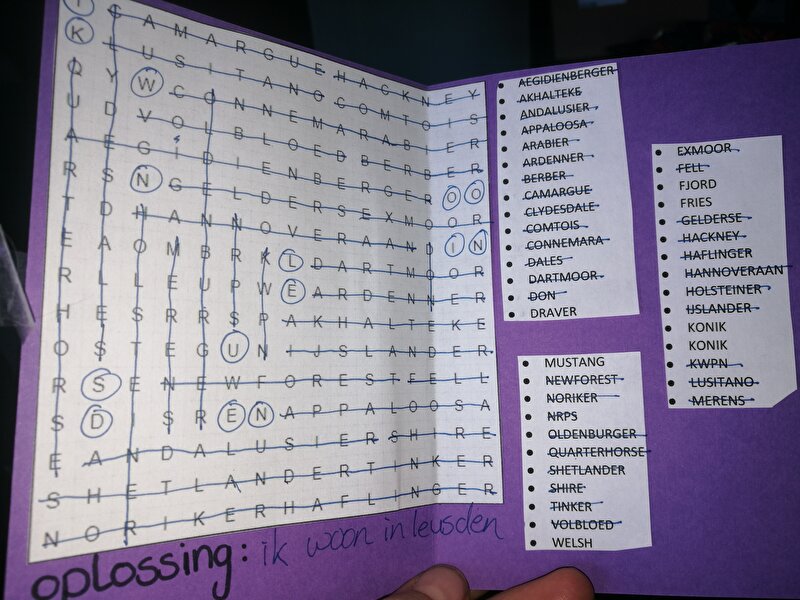 I C A M A R G U E H A C K N E Y
K L U S I T A N O C O M T O I S
Q Y W C O N N E M A R A B I E R
U D V O L B L O E D B E R B E R
A E G I D I E N B E R G E R O O
R S N G E L D E R S E X M O O R
T D H A N N O V E R A A N D I N
E A O M B R K L D A R T M O O R
R L L E U P W E A R D E N N E R
H E S R R S P A K H A L T E K E
O S T E G U N I J S L A N D E R
R S E N E W F O R E S T F E L L
S D I S R E N A P P A L O O S A
E A N D A L U S I E R S H I R E
S H E T L A N D E R T I N K E R
N O R I K E R H A F L I N G E R
oplossing: ik woon in leusden
• AEGIDIENBERGER
• AKHALTEKE
• ANDALUSIER
• APPALOOSA
• ARABIER
• ARDENNER
• BERBER
• CAMARGUE
• CLYDESDALE
• COMTOIS
• CONNEMARA
• DALES
• DARTMOOR
• DON
• DRAVER
• EXMOOR
• FELL
• FJORD
• FRIES
• GELDERSE
• HACKNEY
• HAFLINGER
• HANNOVERAAN
• HOLSTEINER
• IJSLANDER
• KONIK
• KONIK
• KWPN
• LUSITANO
• MERENS
• MUSTANG
• NEWFOREST
• NORIKER
• NRPS
• OLDENBURGER
• QUARTERHORSE
• SHETLANDER
• SHIRE
• TINKER
• VOLBLOED
• WELSH